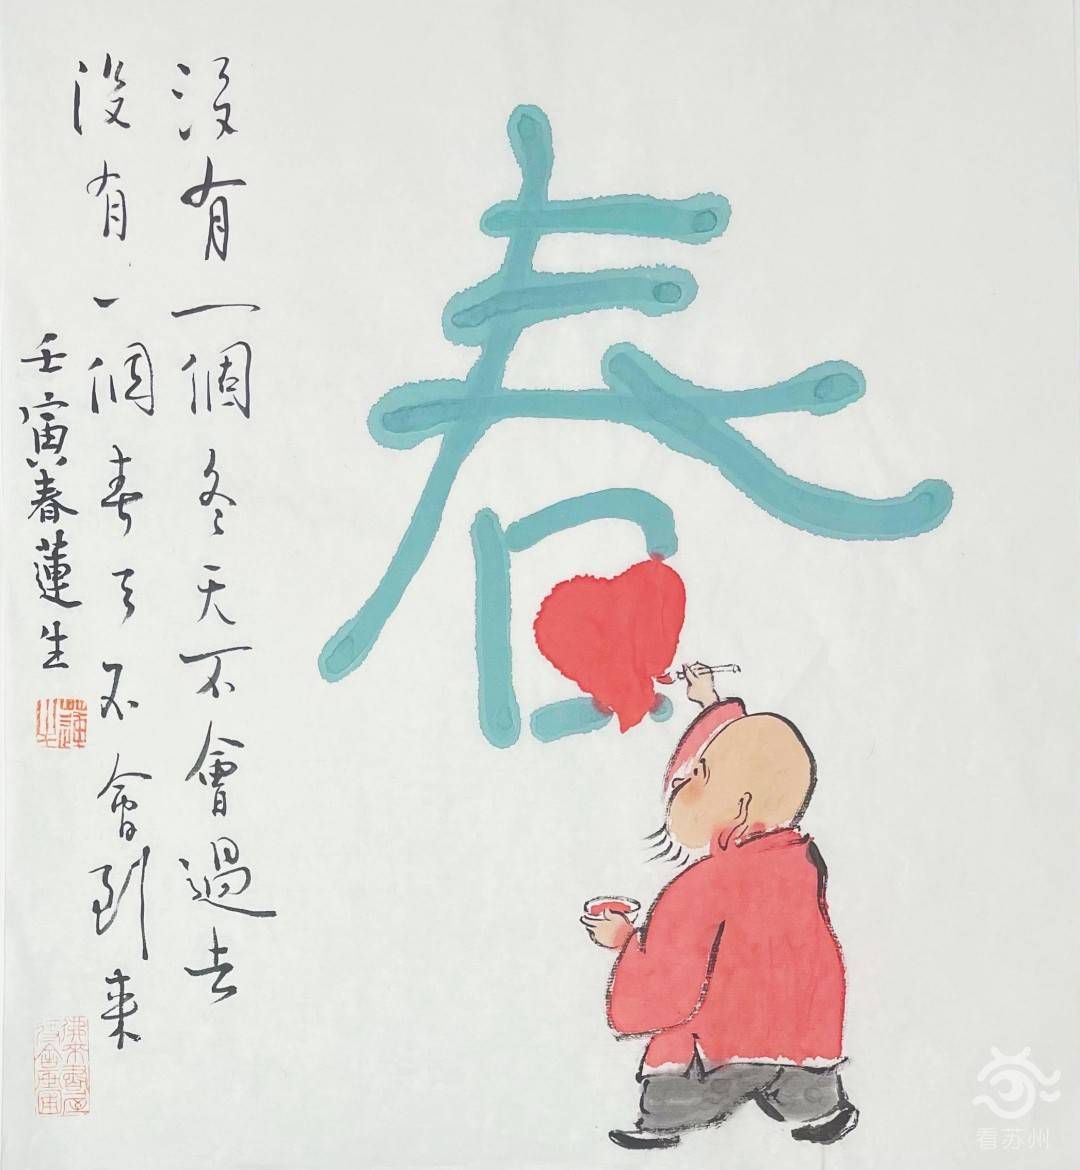 春
没有一個冬天不會過去
没有一個春天不會到来
壬寅春蓮生
看苏州